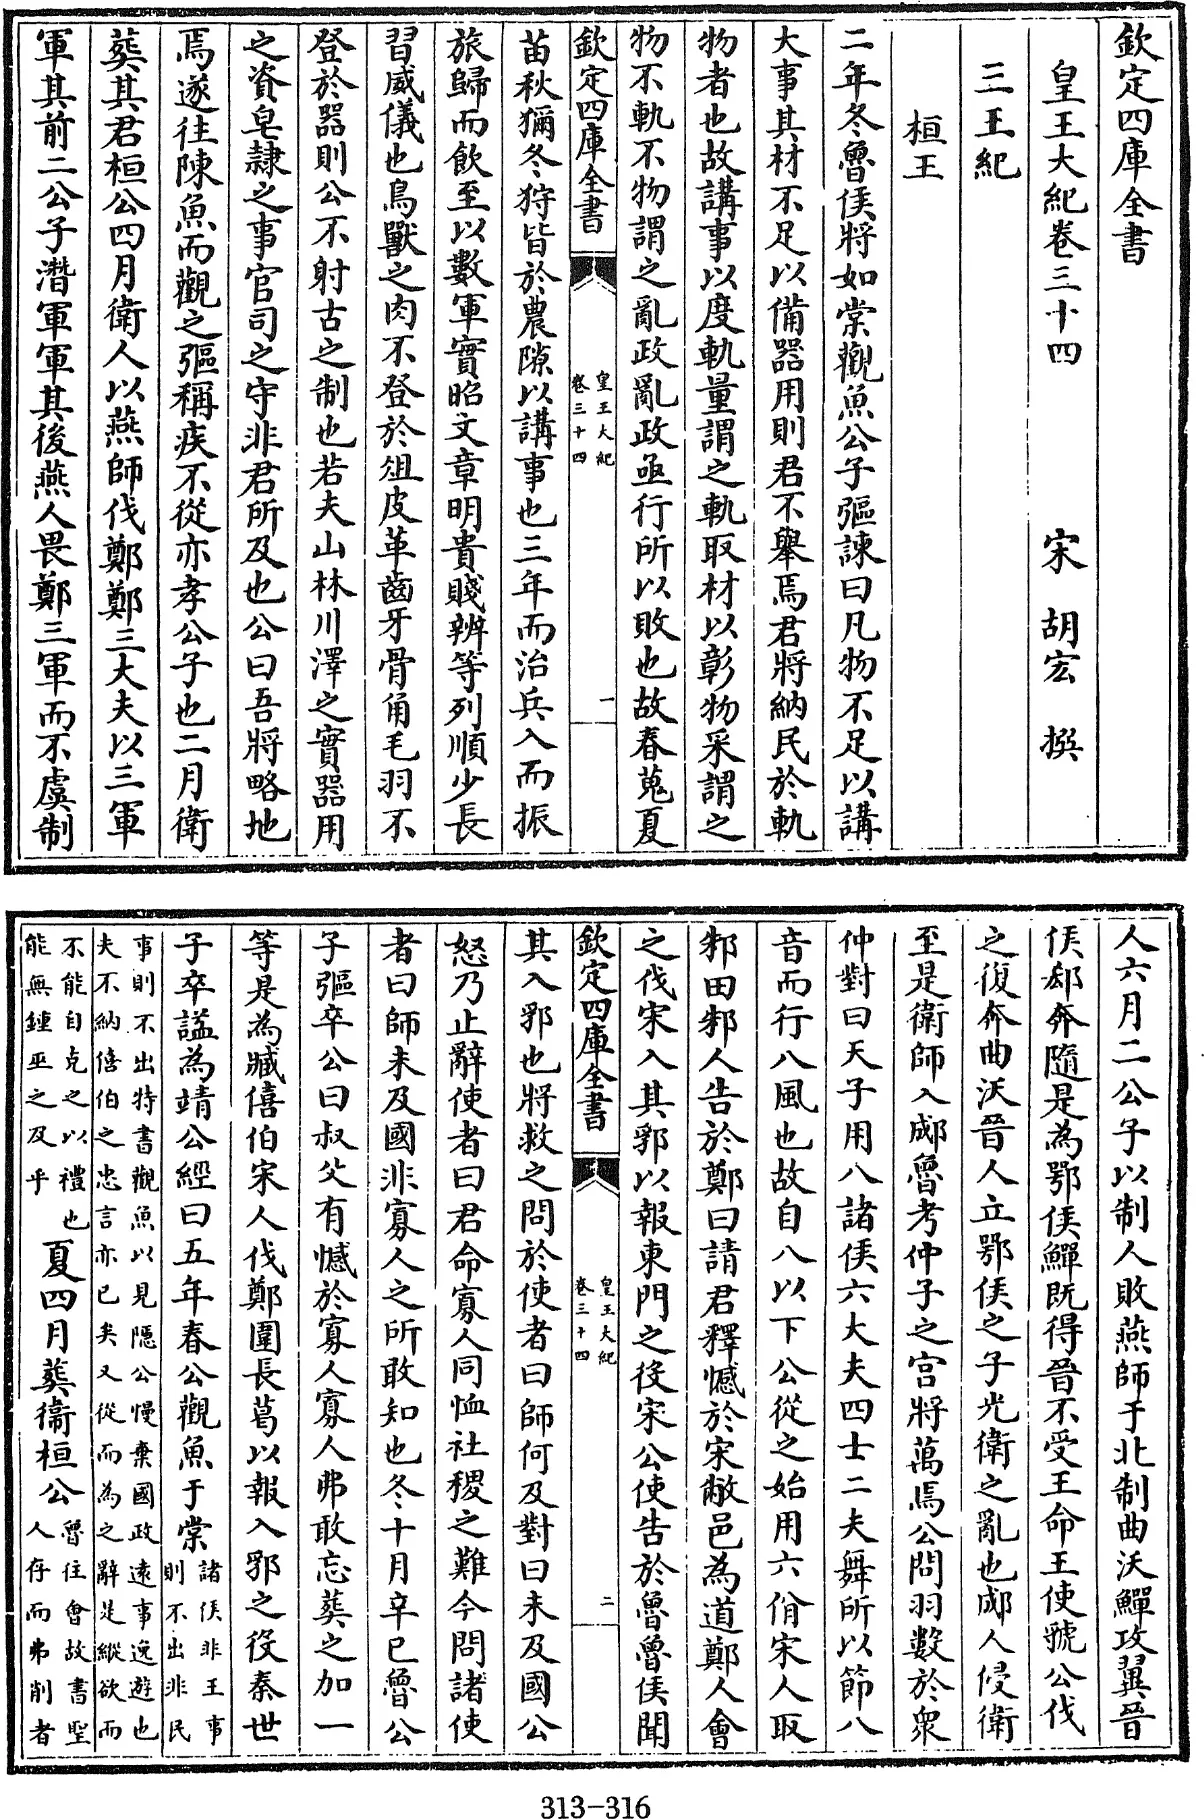 欽定四庫全書
皇王大紀卷三十四
宋 胡宏 撰
三王紀
桓王
二年冬魯侯將如棠觀魚公子彄諫曰凡物不足以講
大事其材不足以備器用則君不舉焉君將納民於軌
物者也故講事以度軌量謂之軌取材以彰物采謂之
物不軌不物謂之亂政亂政亟行所以敗也故春蒐夏
欽定四庫全書
皇王大紀
卷三十四
一
苗秋獮冬狩皆於農隙以講事也三年而治兵入而振
旅歸而飲至以數軍實昭文章明貴賤辨等列順少長
習威儀也鳥獸之肉不登於俎皮革齒牙骨角毛羽不
登於器則公不射古之制也若夫山林川澤之實器用
之資皂隸之事官司之守非君所及也公曰吾將略地
焉遂往陳魚而觀之彄稱疾不從亦孝公子也二月衛
葬其君桓公四月衛人以燕師伐鄭鄭三大夫以三軍
軍其前二公子潛軍軍其後燕人畏鄭三軍而不虞制
人六月二公子以制人敗燕師于北制曲沃鱓攻翼晉
侯郄奔隨是為鄂侯鱓既得晉不受王命王使虢公伐
之復奔曲沃晉人立鄂侯之子光衛之亂也郕人侵衛
至是衛師入郕魯考仲子之宮將萬焉公問羽數於衆
仲對曰天子用八諸侯六大夫四士二夫舞所以節八
音而行八風也故自八以下公從之始用六佾宋人取
邾田邾人告於鄭曰請君釋憾於宋敝邑為道鄭人會
之伐宋入其郛以報東門之役宋公使告於魯魯侯聞
欽定四庫全書
皇王大紀
卷三十四
二
其入郛也將救之問於使者曰師何及對曰未及國公
怒乃止辭使者曰君命寡人同恤社稷之難今問諸使
者曰師未及國非寡人之所敢知也冬十月辛巳魯公
子彄卒公曰叔父有憾於寡人寡人弗敢忘葬之加一
等是為臧僖伯宋人伐鄭圍長葛以報入郛之役秦世
子卒謚為靖公經曰五年春公觀魚于棠諸侯非王事
則不出非民
事則不出特書觀魚以見隱公慢棄國政遠事逸遊也
夫不納僖伯之忠言亦已矣又從而為之辭是縱欲而
不能自克之以禮也
能無鍾巫之及乎
夏四月葬衛桓公魯往會故書聖
人存而弗削者
313-316